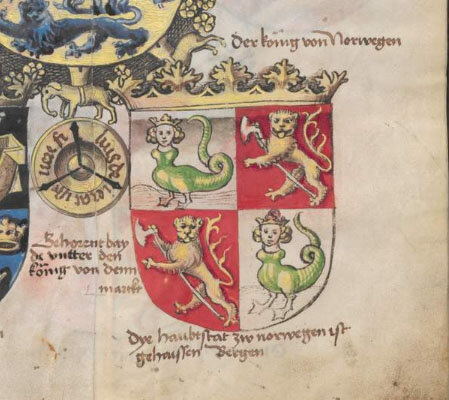 Der köng von Norwegen
Gehorent bay
de vntter den
köng von denn
marckt
Dye haubtstat zw norwegen ist
gehaissen Bergen